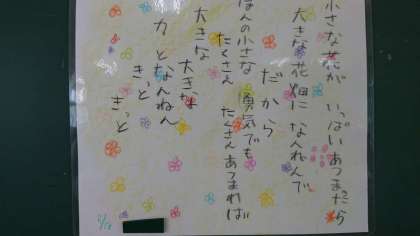 小さな花が いっぱいあつまったら
大きな花畑に なんねんで
だから
ほんの小さな 勇気でも
たくさん たくさんあつまれば
大きな 大きな
力となんねん
きっと きっと